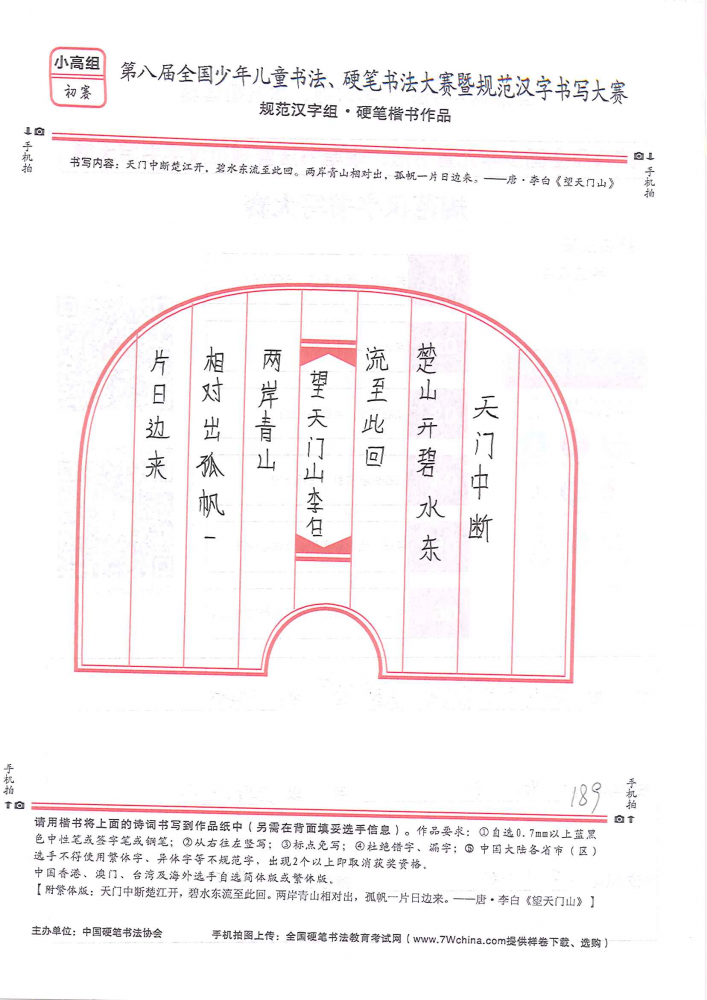 小高组
初赛
第八届全国少年儿童书法、硬笔书法大赛暨规范汉字书写大赛
规范汉字组·硬笔楷书作品
手机拍
手机拍
书写内容：天门中断楚江开，碧水东流至此回。两岸青山相对出，孤帆一片日边来。——唐·李白《望天门山》
天门中断
楚山开碧水东
流至此回
望天门山李白
两岸青山
相对出孤帆一
片日边来
189
手机拍
手机拍
请用楷书将上面的诗词书写到作品纸中（另需在背面填妥选手信息）。作品要求：①自选0.7mm以上蓝黑
色中性笔或签字笔或钢笔；②从右往左竖写；③标点免写；④杜绝错字、漏字；⑤中国大陆各省市（区）
选手不得使用繁体字、异体字等不规范字，出现2个以上即取消获奖资格。
中国香港、澳门、台湾及海外选手自选简体版或繁体版。
【附繁体版：天门中断楚江开，碧水东流至此回。两岸青山相对出，孤帆一片日边来。——唐·李白《望天门山》】
主办单位：中国硬笔书法协会 手机拍图上传：全国硬笔书法教育考试网（www.7Wchina.com提供样卷下载、选购）